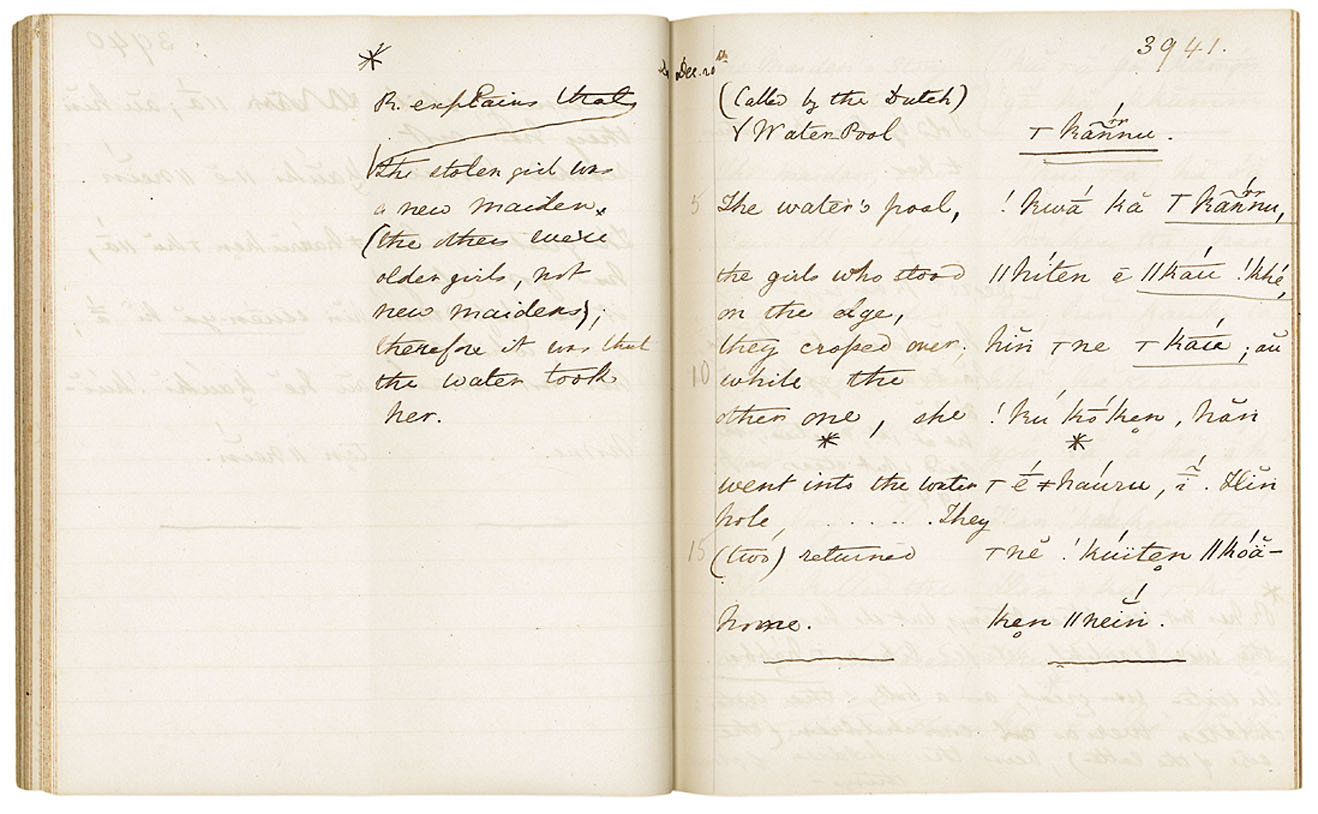 *
R. explains that
the stolen girl was
a new maiden.
(the others were
older girls, not
new maidens);
therefore it was that
the water took
her.
Dec. 20th
3941.
(Called by the Dutch)
Water Pool ⊤ kánnu.
5 The water's pool, ! kwá kă ⊤ kánnu,
the girls who stood ǁhíten ē ǁkáu !khé,
on the edge,
they croped over; hĭn ⊤ ne ⊤ káu; au
10 while the
other one, she ! kú kó̄ken, hăn
* *
went into the water ⊤ é ǂ haúru, ī. Hĭn
hole, . . . . . They
15 (two) returned ⊤ nĕ ! kúïten ǁkóä-
home. ken ǁneĭn.